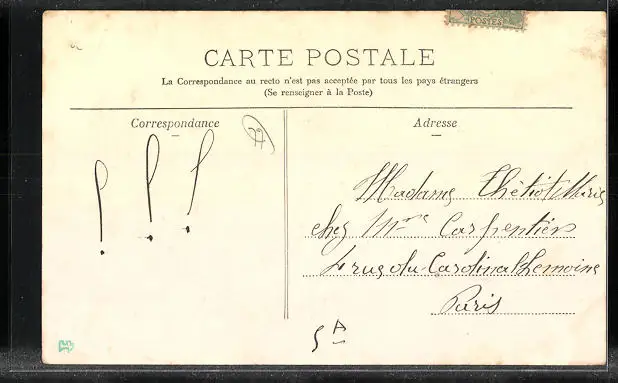 POSTES
CARTE POSTALE
La Correspondance au recto n'est pas acceptée par tous les pays étrangers
(Se renseigner à la Poste)
Correspondance
Adresse
! ! !
Madame Thétiot Marie
chez Mme Carpentier
4 rue du Cardinal Lemoine
Paris
5A